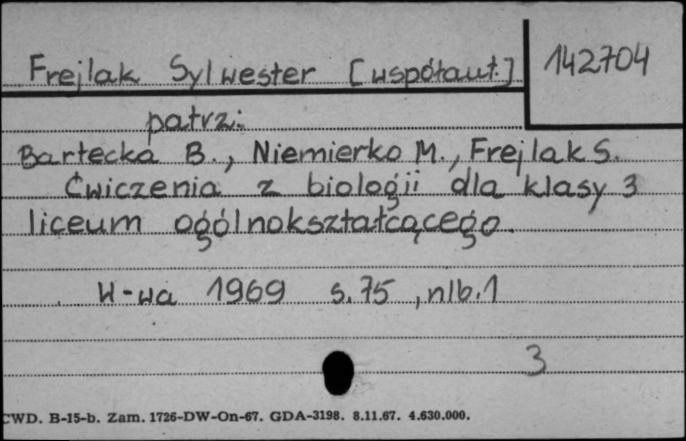 Frejlak Sylwester [współaut.] 142704
patrz:
Bartecka B., Niemierko M., Frejlak S.
Ćwiczenia z biologii dla klasy 3
liceum ogólnokształcącego.
W-wa 1969 s. 75, nlb. 1
3
CWD. B-15-b. Zam. 1726-DW-On-67. GDA-3198. 8.11.67. 4.630.000.